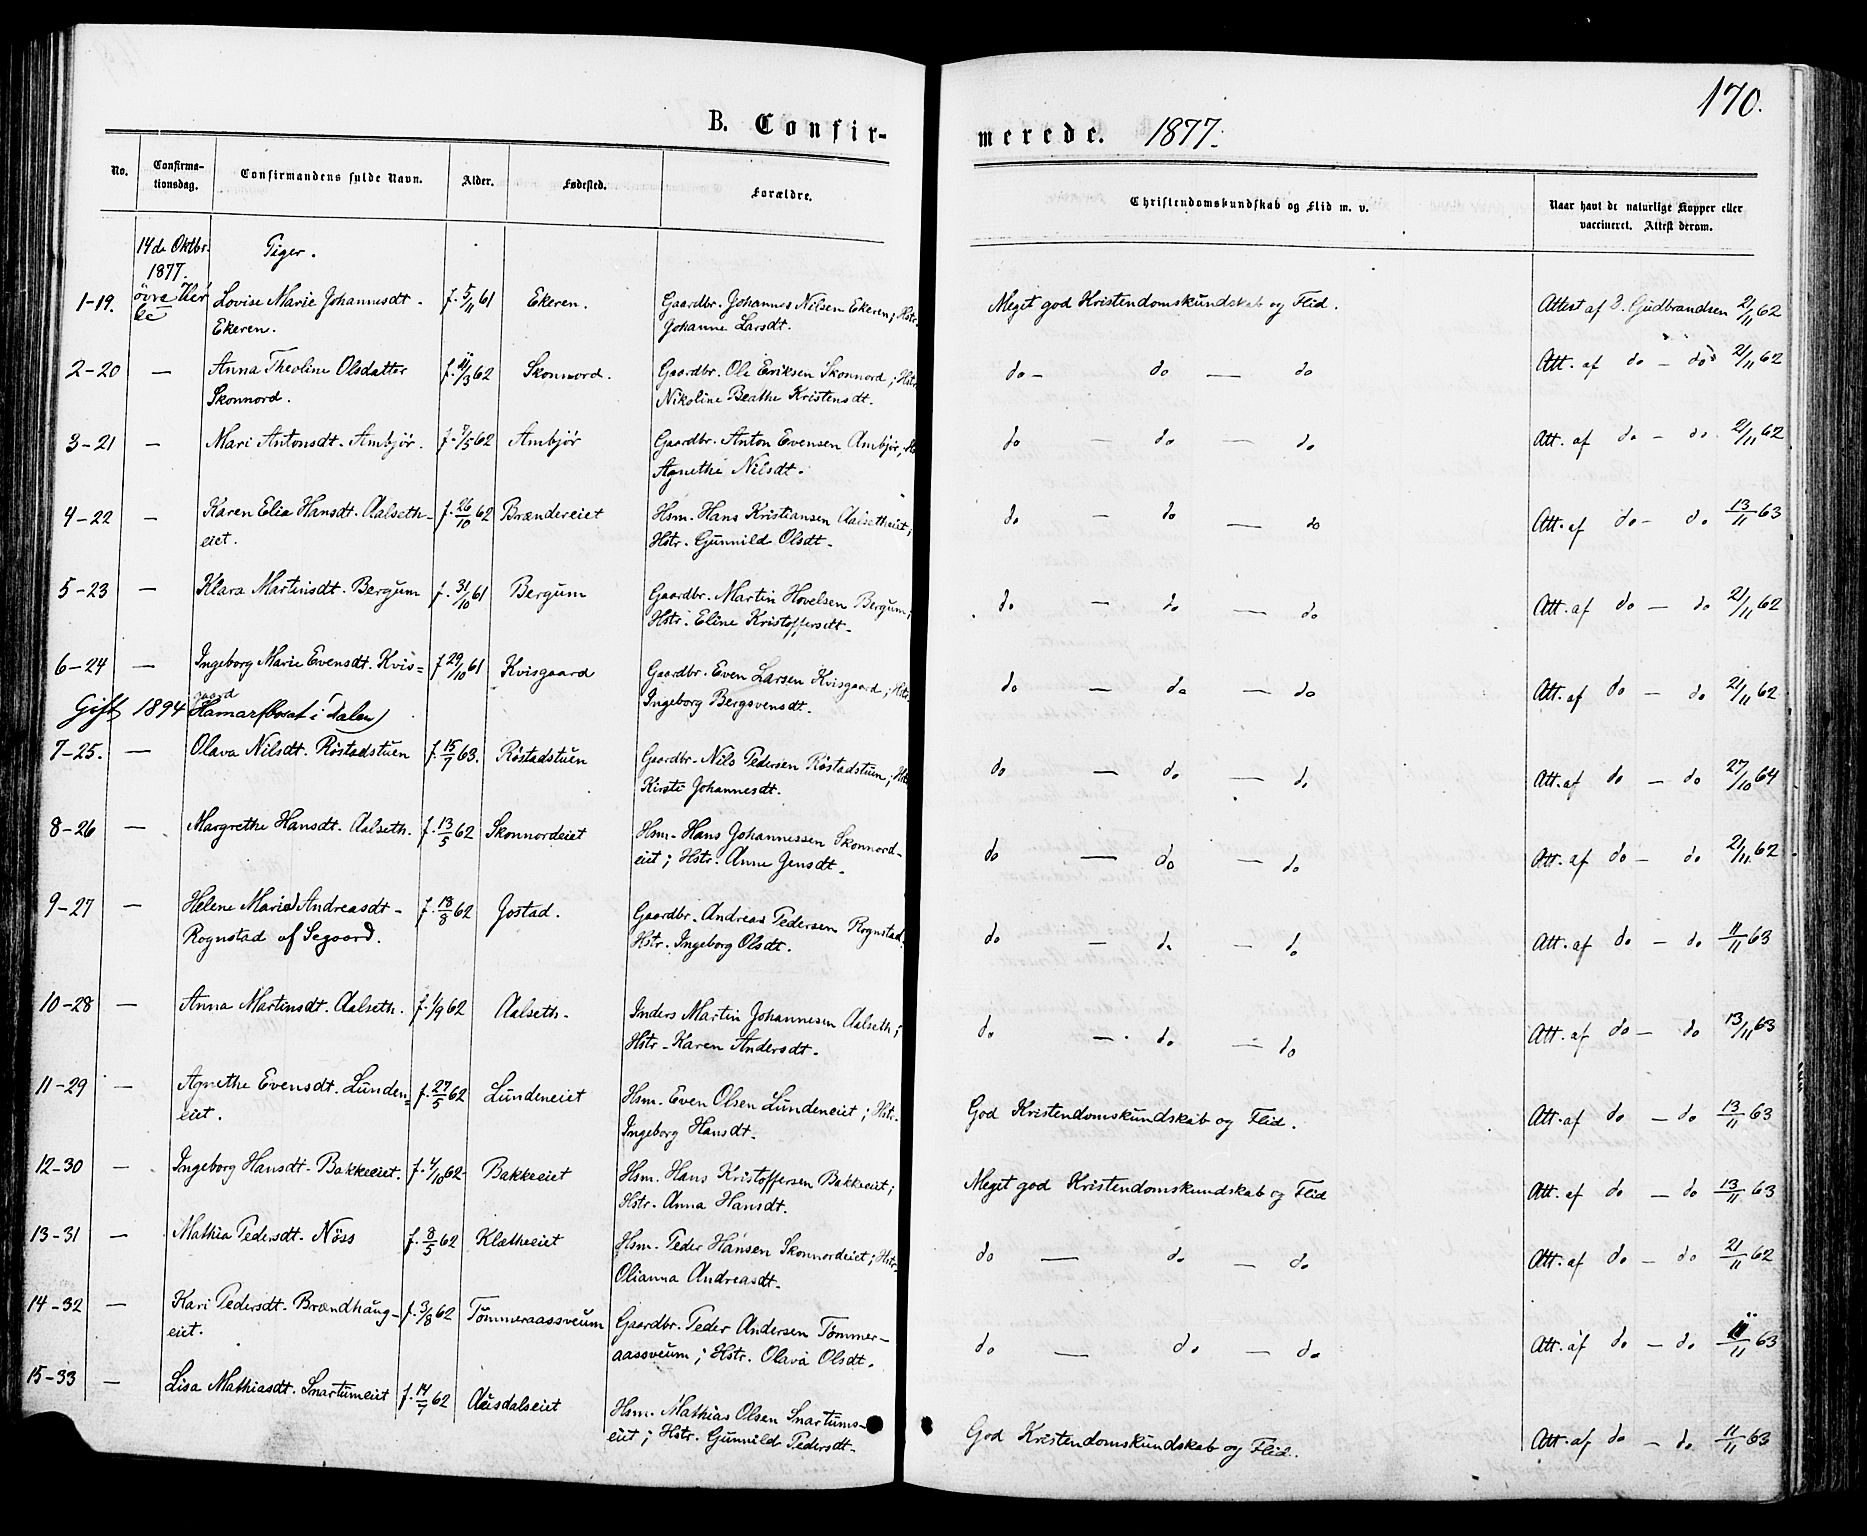 170.
B. Confir-
merede. 1877.
No.
Confirma-
tionsdag.
Confirmandens fulde Navn.
Alder.
Fødested.
Forældre.
Christendomskundskab og Flid m. v.
Naar havt de naturlige Kopper eller
vaccineret. Attest derom.
14de Oktbr. Piger.
1877.
1-19. Lovise Marie Johannesdt. f. 5/11 61 Ekeren. Gaardbr. Johannes Nilsen Ekeren; Hstr. Meget god Kristendomskundskab og Flid. Attest af J. Gudbrandsen 21/11 62
Ekeren. Johanne Larsdt.
2-20 — Anna Theoline Olsdatter f. 11/3 62 Skonnord. Gaardbr. Ole Eriksen Skonnord; Hstr. do - do — do Att. af do - do 21/11 62
Skonnord. Nikoline Beathe Kristensdt.
3-21 — Mari Antonsdt. Ambjør. f. 9/5 62 Ambjør Gaardbr. Anton Evensen Ambjør, do — do — do Att. af do - do. 21/11 62
Agnethe Nilsdt.
4-22 — Karen Elia Hansdt. Aalseth- f. 26/10 62 Brændereiet Hsm. Hans Kristiansen Aalsetheiet; do — do — do Att. af do - do 13/11 63
eiet. Hstr. Gunnild Olsdt.
5-23 — Klara Martinsdt. Bergum f. 31/10 61 Bergum Gaardbr. Martin Hovelsen Bergum; do — do — do Att. af do — do 21/11 62
Hstr. Eline Kristoffersdt.
6-24 — Ingeborg Marie Evensdt. Kvis= f 29/10 61 Kvisgaard Gaardbr. Even Larsen Kvisgaard; Hstr. do — do — do Att. af do — do 21/11 62
gaard Ingeborg Bergsvensdt.
Gift 1894 Hamar (bosat i Dalen)
7-25. — Olava Nilsdt. Røstadstuen f. 15/7 63. Røstadstuen Gaardbr. Nils Pedersen Røstadstuen; Hstr do — do — do Att. af do — do 27/10 64
Kirsti Johannesdt.
8-26 — Margrethe Hansdt. Aalseth. f. 13/5 62 Skonnordeiet Hsm. Hans Johannessen Skonnord- do — do — do Att. af do - do 21/11 62
eiet; Hstr. Anne Jensdt.
9-27 — Helene Marie Andreasdt - f. 18/8 62 Jostad. Gaardbr. Andreas Pedersen Rognstad. do — do — do Att. af do — do 11/11 63
Rognstad af Segaard. Hstr. Ingeborg Olsdt.
10-28 — Anna Martinsdt. Aalseth. f. 1/9 62 Aalseth. Inders Martin Johannesen Aalseth; do — do — do Att. af do - do 13/11 63
Hstr. Karen Andersdt.
11-29 — Agnethe Evensdt. Lunden= f. 27/5 62 Lundeneiet Hsm. Even Olsen Lundeneiet; Hstr. God Kristendomskundskab og Flid. Att. af do — do 13/11 63
eiet. Ingeborg Hansdt.
12-30 — Ingeborg Hansdt. Bakkeeiet. f. 4/10 62 Bakkeeiet Hsm. Hans Kristoffersen Bakkeeiet; Meget god Kristendomskundskab og Flid Att. af do — do 13/11 63
Hstr. Anna Hansdt.
13-31 — Mathia Pedersdt. Nøss f. 8/5 62 Klætheeiet Hsm. Peder Hansen Skonnordeiet; Hstr. do — do — do Att. af do — do 21/11 62
Olianna Andreasdt.
14-32 — Kari Pedersdt. Brændhaug- f. 3/8 62 Tømmeraassveum Gaardbr. Peder Andersen Tømmer- do — do — do Att. af do — do 11/11 63
eiet. aassveum; Hstr. Olava Olsdt.
15-33 — Lisa Mathiasdt. Snartumeiet f. 14/7 62 Ausdalseiet Hsm. Mathias Olsen Snartums- God Kristendomskundskab og Flid. Att. af do — do 11/11 63
eiet; Hstr. Gunnild Pedersdt.